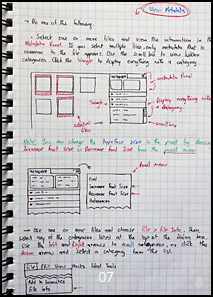 View Metadata
→ Do one of the following.
- Select one or more files and view the information in the
Metadata Panel. If you select multiple files, only metadata that is
common in the file appears. Use the scroll bar to view hidden
categories. Click the triangle to display everything with a category.
metadata panel
Metadata
triangle
display everything with a
category
selected
files
scrollbar
Note: You can change the typeface size in the panel by choosing
Increase Font Size or Decrease Font Size from the panel menu.
panel menu
Metadata
Find
Increase Font Size
Decrease Font Size
Preferences
→ Use one or more files and choose File > File Info. Then,
select one of the categories listed at the top of the dialog box.
Use the left and right arrows to scroll categories, or click the
down arrow and select a category from the list.
File Edit View Stacks Label Tools
File Info
07